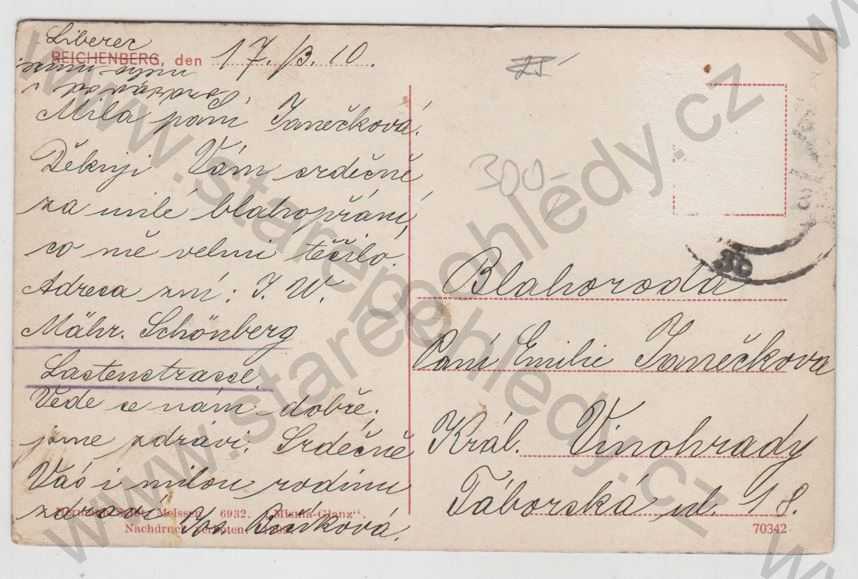 Liberec
REICHENBERG, den 17./3. 10.
Milá paní Janečková.
Děkuji Vám srdečně
za milé blahopřání,
co mě velmi těšilo.
Adresa zní: J. W.
Mähr. Schönberg
Lastenstrasse.
Vede se nám dobře,
jsme zdrávi. Srdečně
Vás i milou rodinu
6932. "Mania-Glanz".
Nachdruck verboten
25
300-
Blahorodá
Paní Emilie Janečkova
Král. Vinohrady
Táborská ul. 18.
70342
www.starepohledy.cz
www.starepohledy.cz